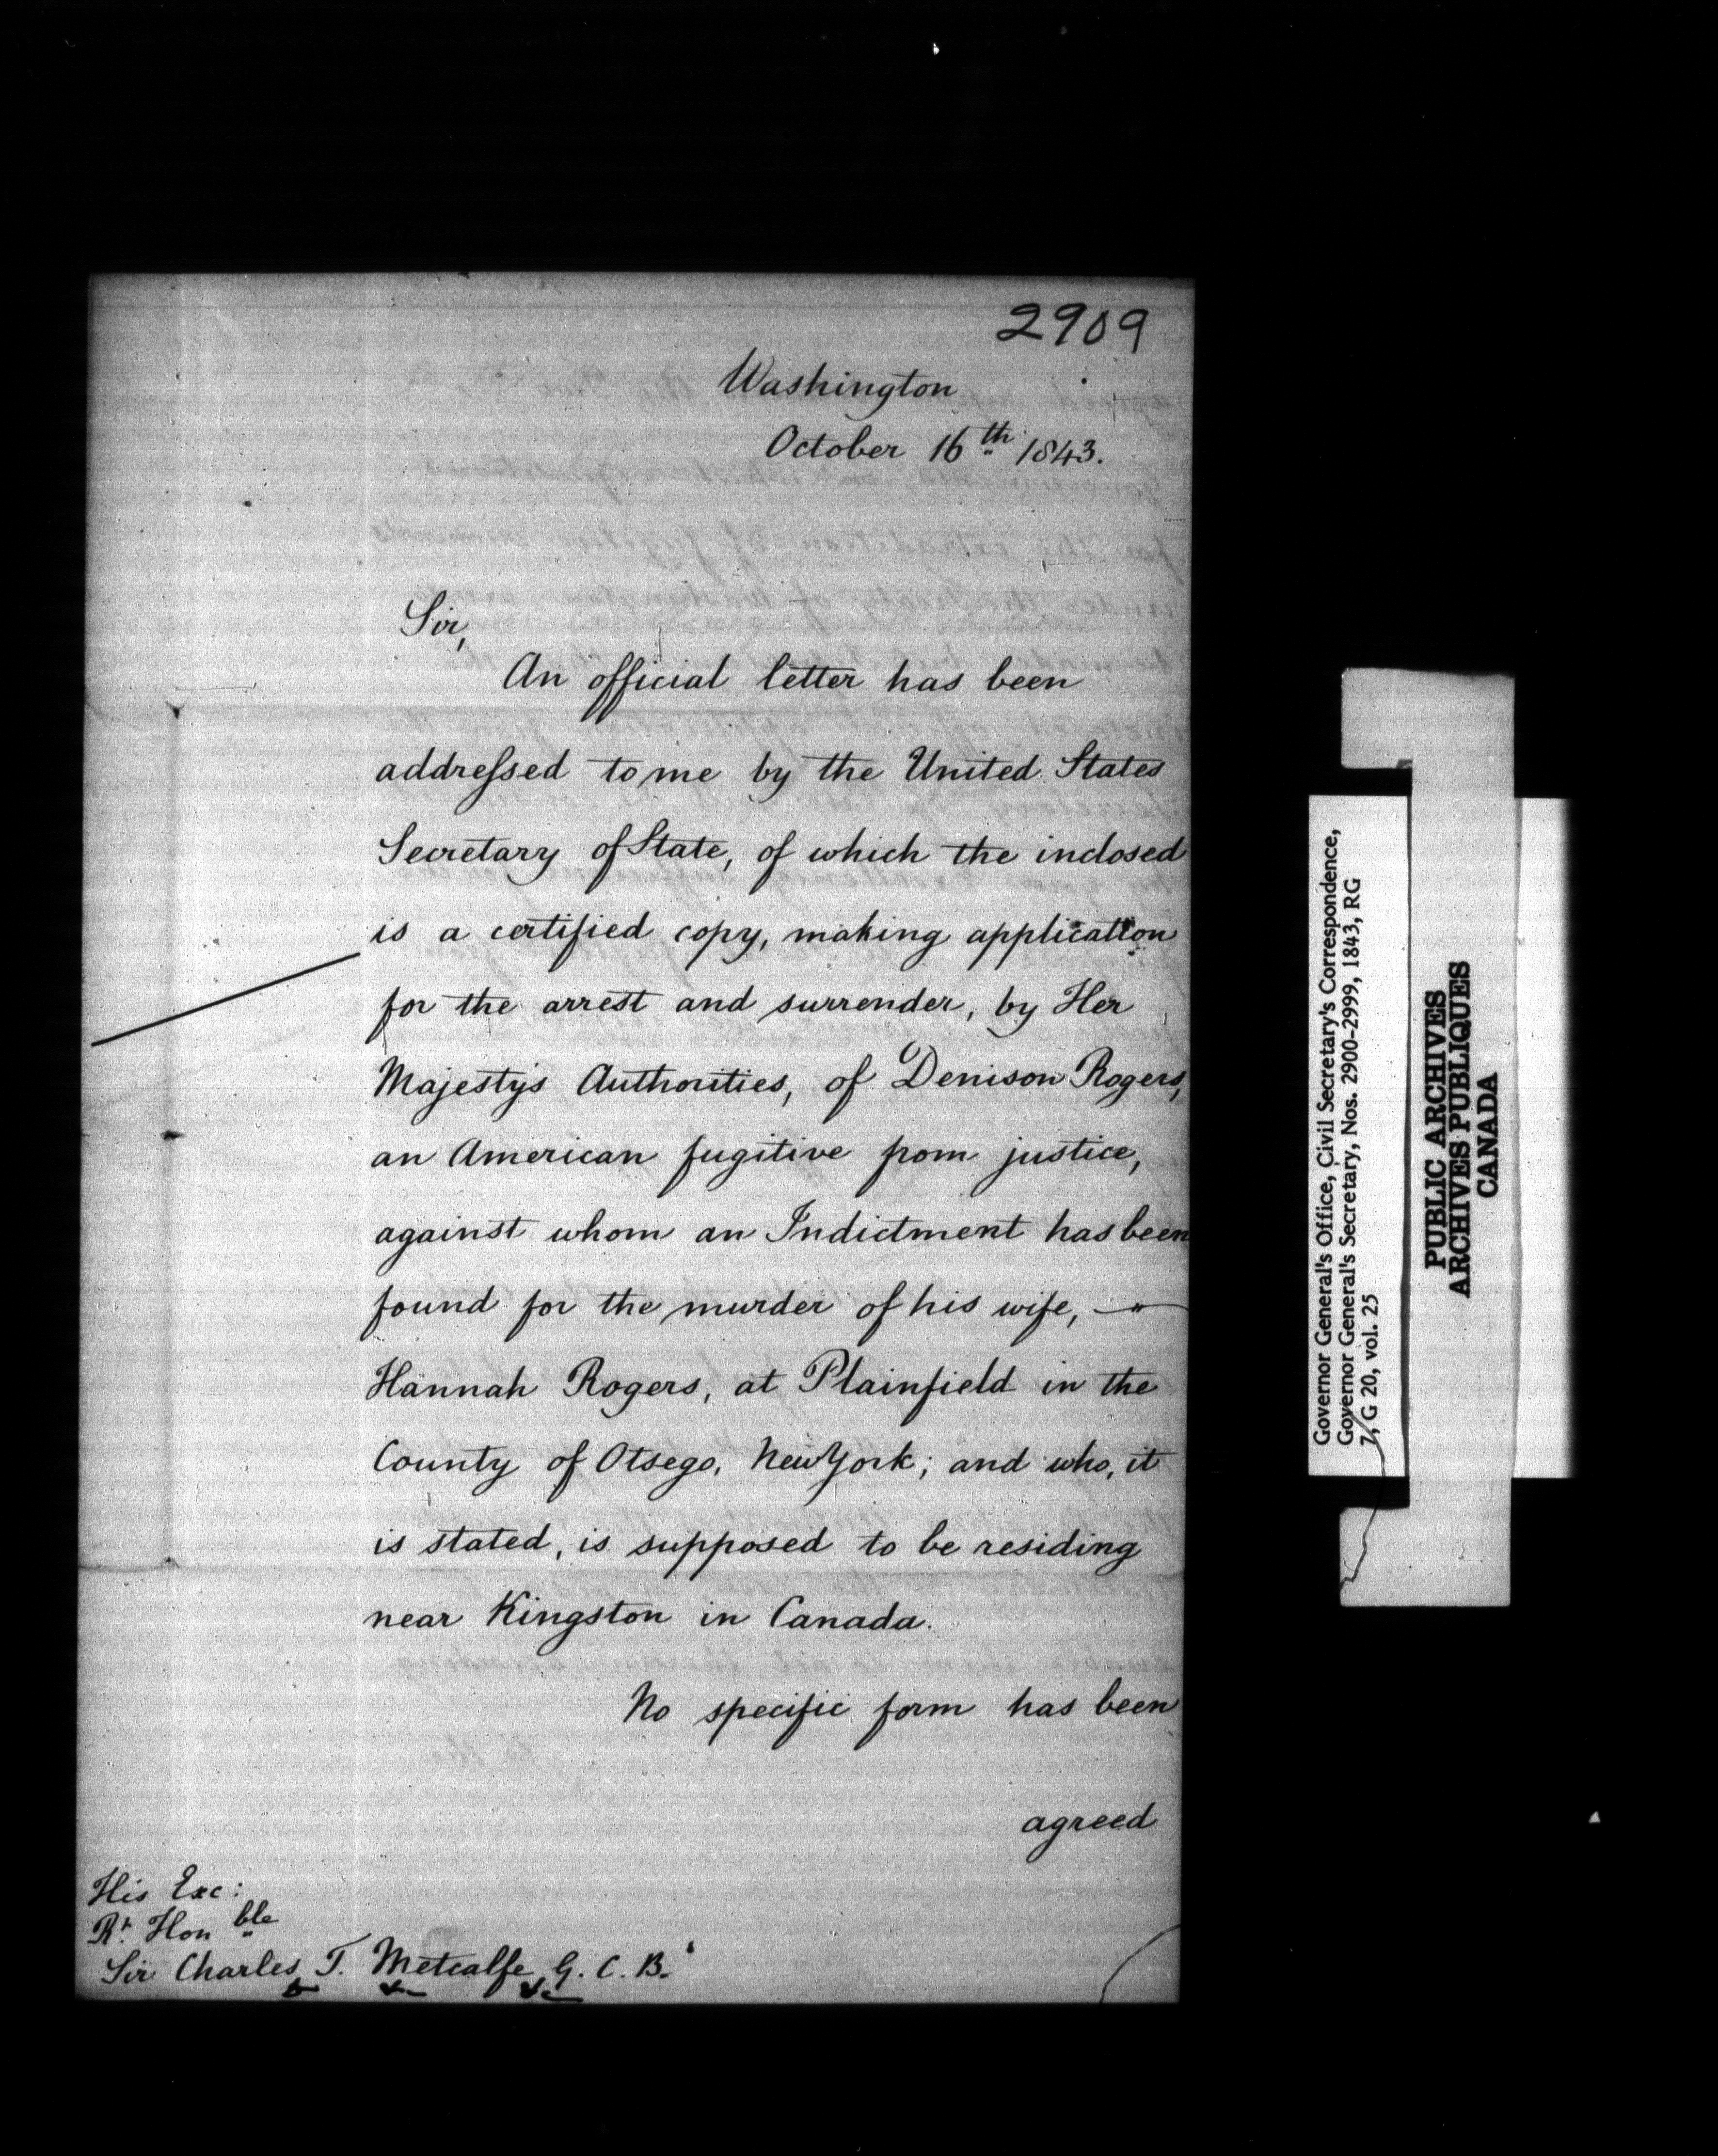 2909
Washington
October 16th 1843.
Sir,
An official letter has been
addressed to me by the United States
Secretary of State, of which the inclosed
is a certified copy, making application
for the arrest and surrender, by Her
Majesty's Authorities, of Denison Rogers,
an American fugitive from justice,
against whom an Indictment has been
found for the murder of his wife, —
Hannah Rogers, at Plainfield in the
County of Otsego, New York; and who, it
is stated, is supposed to be residing
near Kingston in Canada.
No specific form has been
agreed
His Exc:
Rt. Honble
Sir Charles T. Metcalfe G. C. B.
Governor General's Office, Civil Secretary's Correspondence,
Governor General's Secretary, Nos. 2900-2999, 1843, RG
7, G 20, vol. 25
PUBLIC ARCHIVES
ARCHIVES PUBLIQUES
CANADA